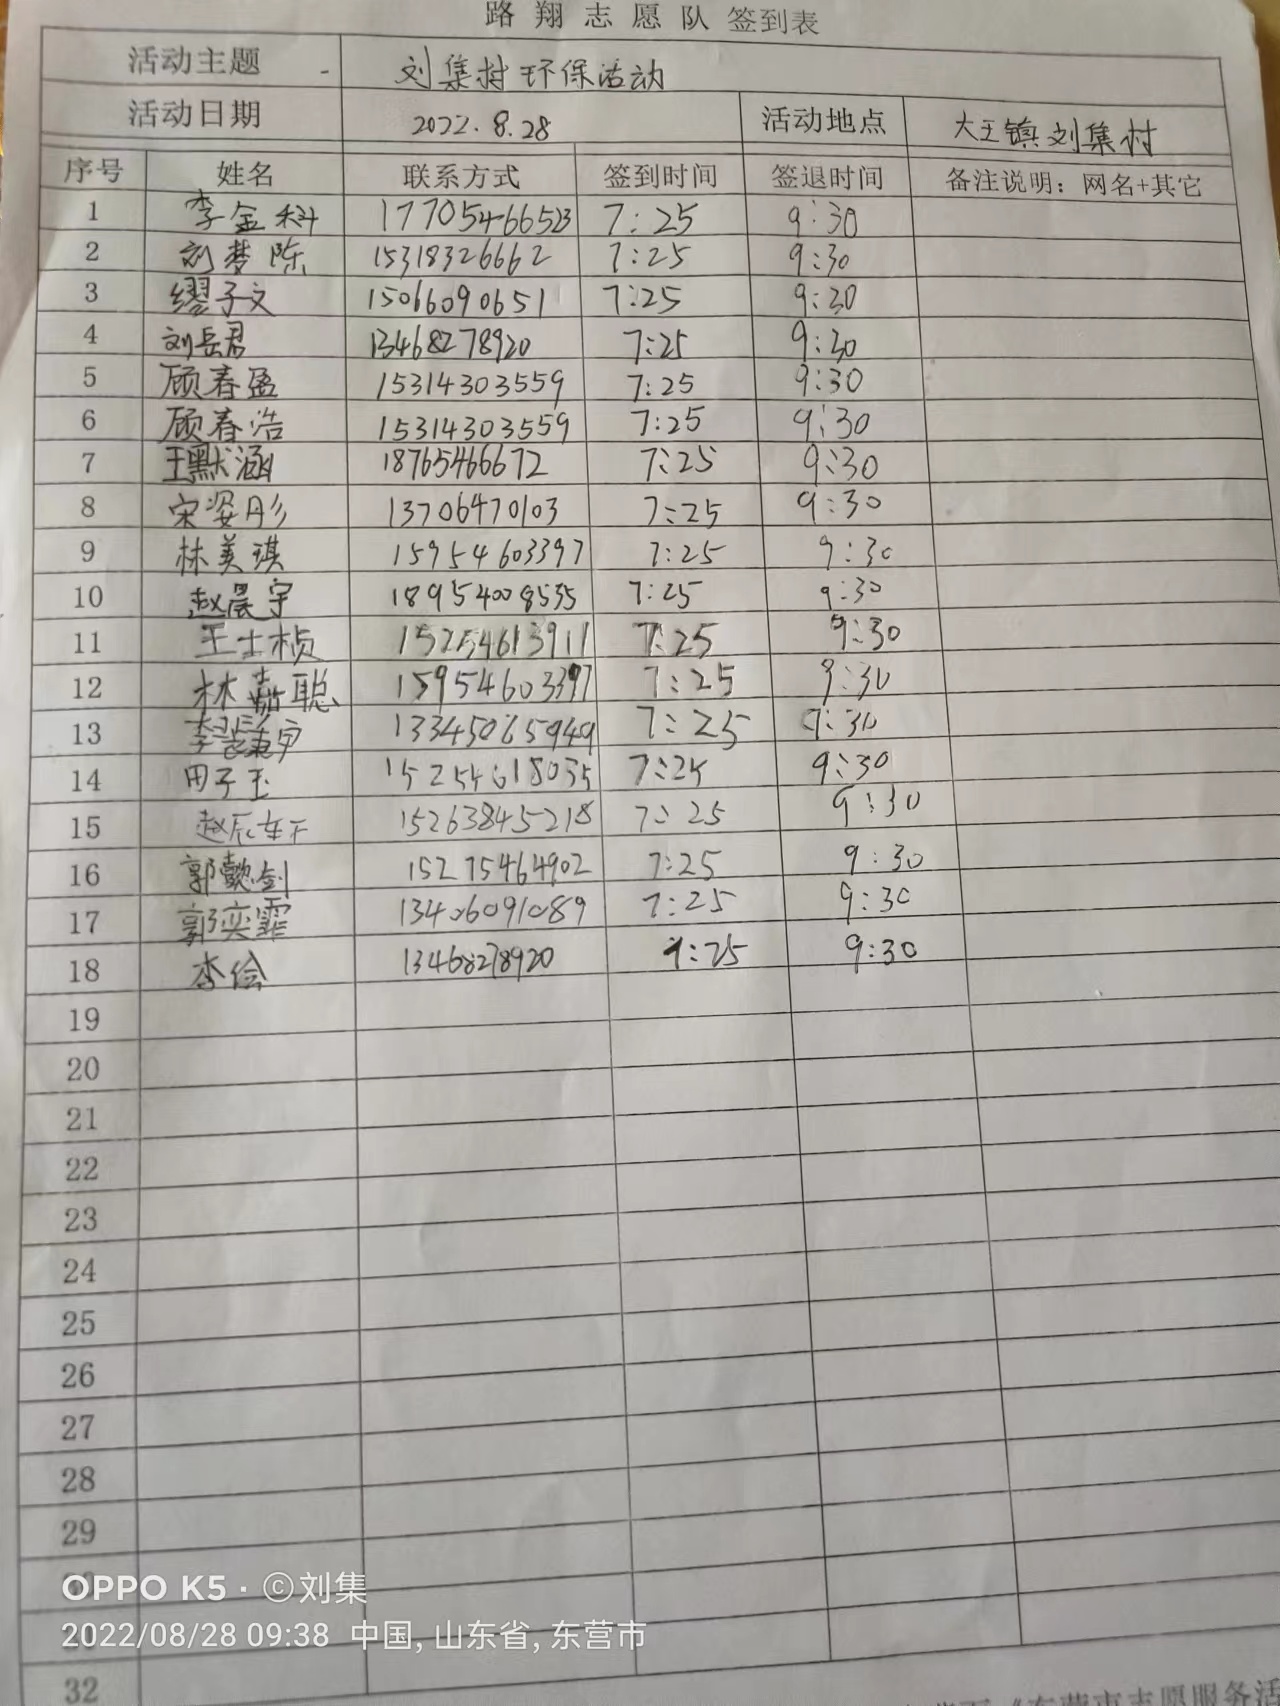 路翔志愿队签到表
活动主题 刘集村环保活动
活动日期 2022.8.28 活动地点 大王镇刘集村
序号 姓名 联系方式 签到时间 签退时间 备注说明：网名+其它
1 李金科 17705466523 7:25 9:30
2 刘梦陈 15318326662 7:25 9:30
3 缪子文 15066090651 7:25 9:30
4 刘岳君 13468278920 7:25 9:30
5 顾春盈 15314303559 7:25 9:30
6 顾春浩 15314303559 7:25 9:30
7 王默涵 18765466672 7:25 9:30
8 宋姿彤 13706470103 7:25 9:30
9 林美琪 15954603397 7:25 9:30
10 赵晨宇 18954008535 7:25 9:30
11 王士桢 15254613911 7:25 9:30
12 林嘉聪 15954603397 7:25 9:30
13 13345065949 7:25 9:30
14 田子玉 15254618035 7:25 9:30
15 15263845218 7:25 9:30
16 郭懿剑 15275464902 7:25 9:30
17 郭奕霏 13406091089 7:25 9:30
18 李绘 13468278920 9:30
19
20
21
22
23
24
25
26
27
28
29
OPPO K5 · ©刘集
2022/08/28 09:38 中国, 山东省, 东营市
32